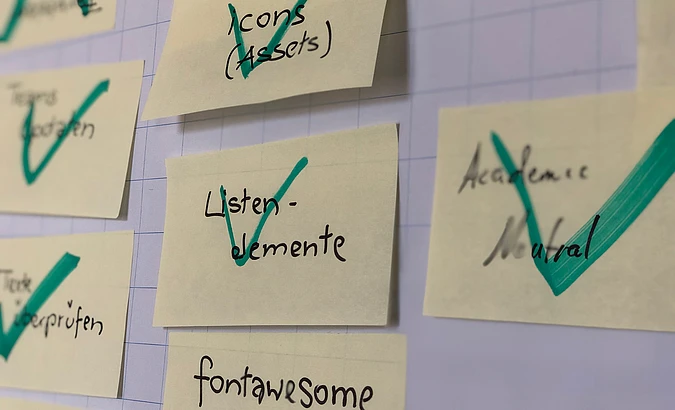 Icons
(Assets)
Teams
Updaten
Listen-
elemente
Academic
Neutral
Texte
überprüfen
fontawesome